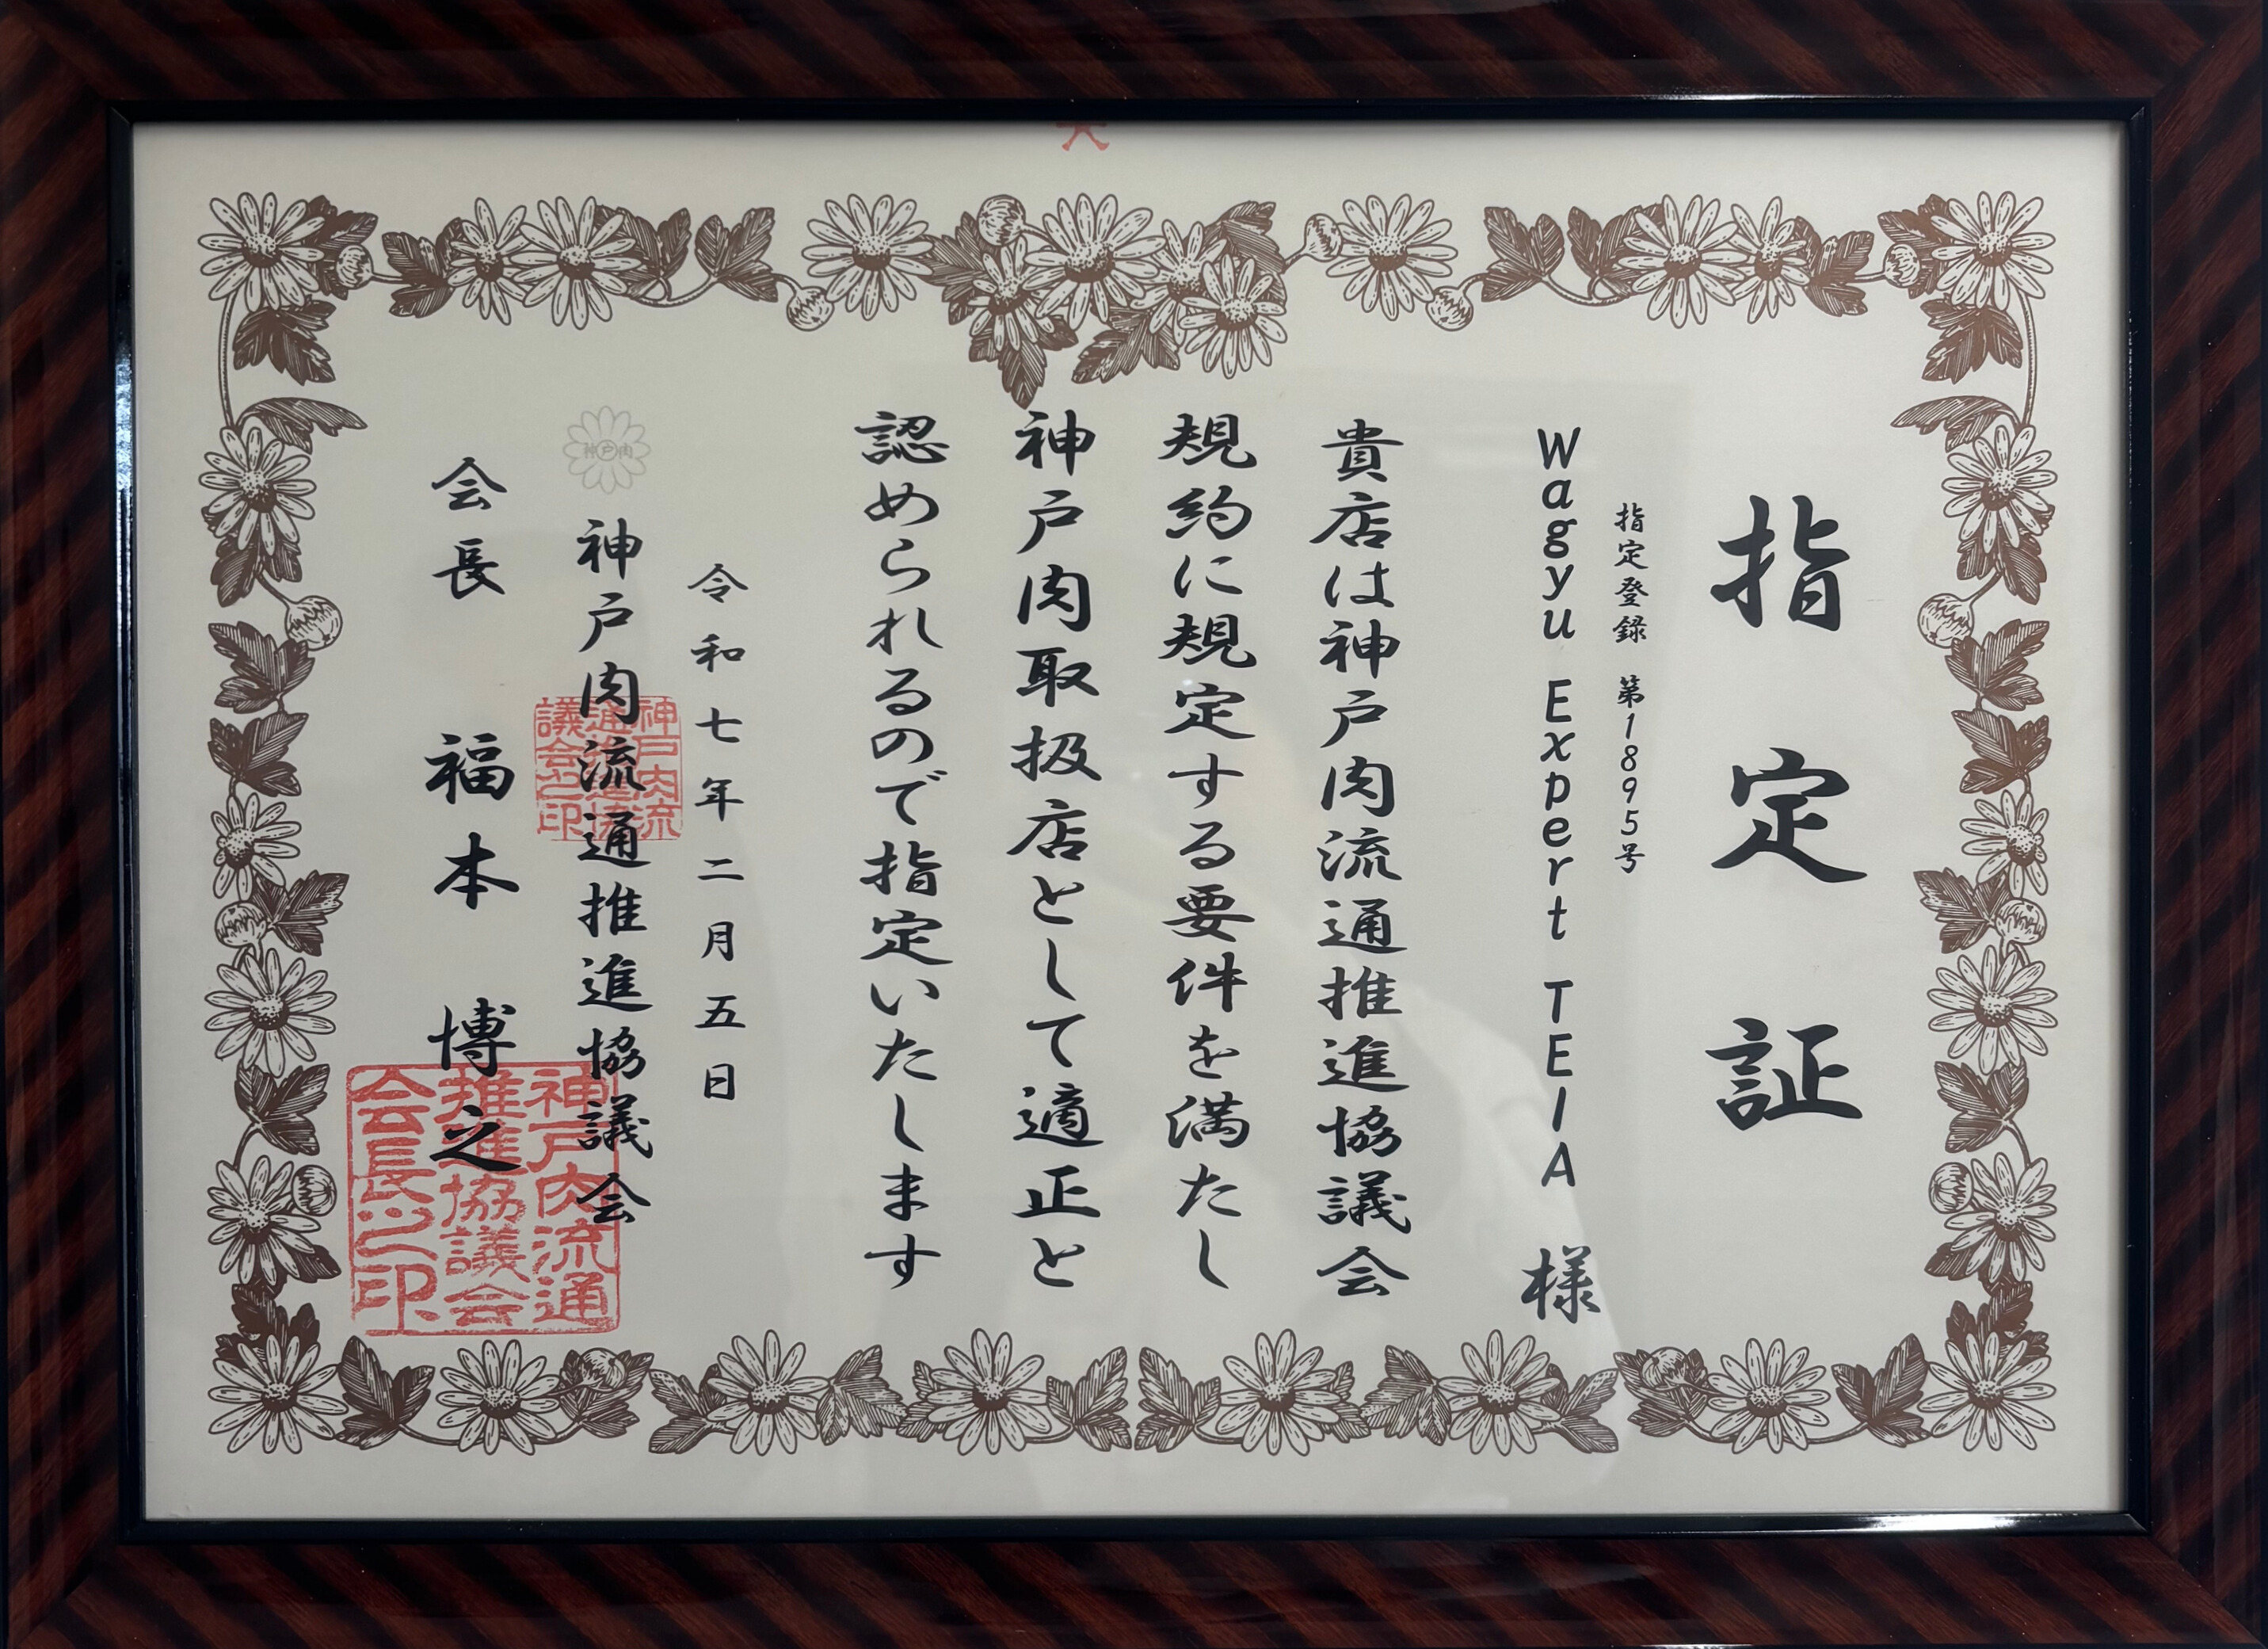 指定証
指定登録 第1895号
Wagyu Expert TEIA 様
貴店は神戸肉流通推進協議会
規約に規定する要件を満たし
神戸肉取扱店として適正と
認められるので指定いたします
令和七年二月五日
神戸肉
神戸肉流通推進協議会
神戸肉流通推進協議会之印
会長 福本 博之
神戸肉流通推進協議会会長之印